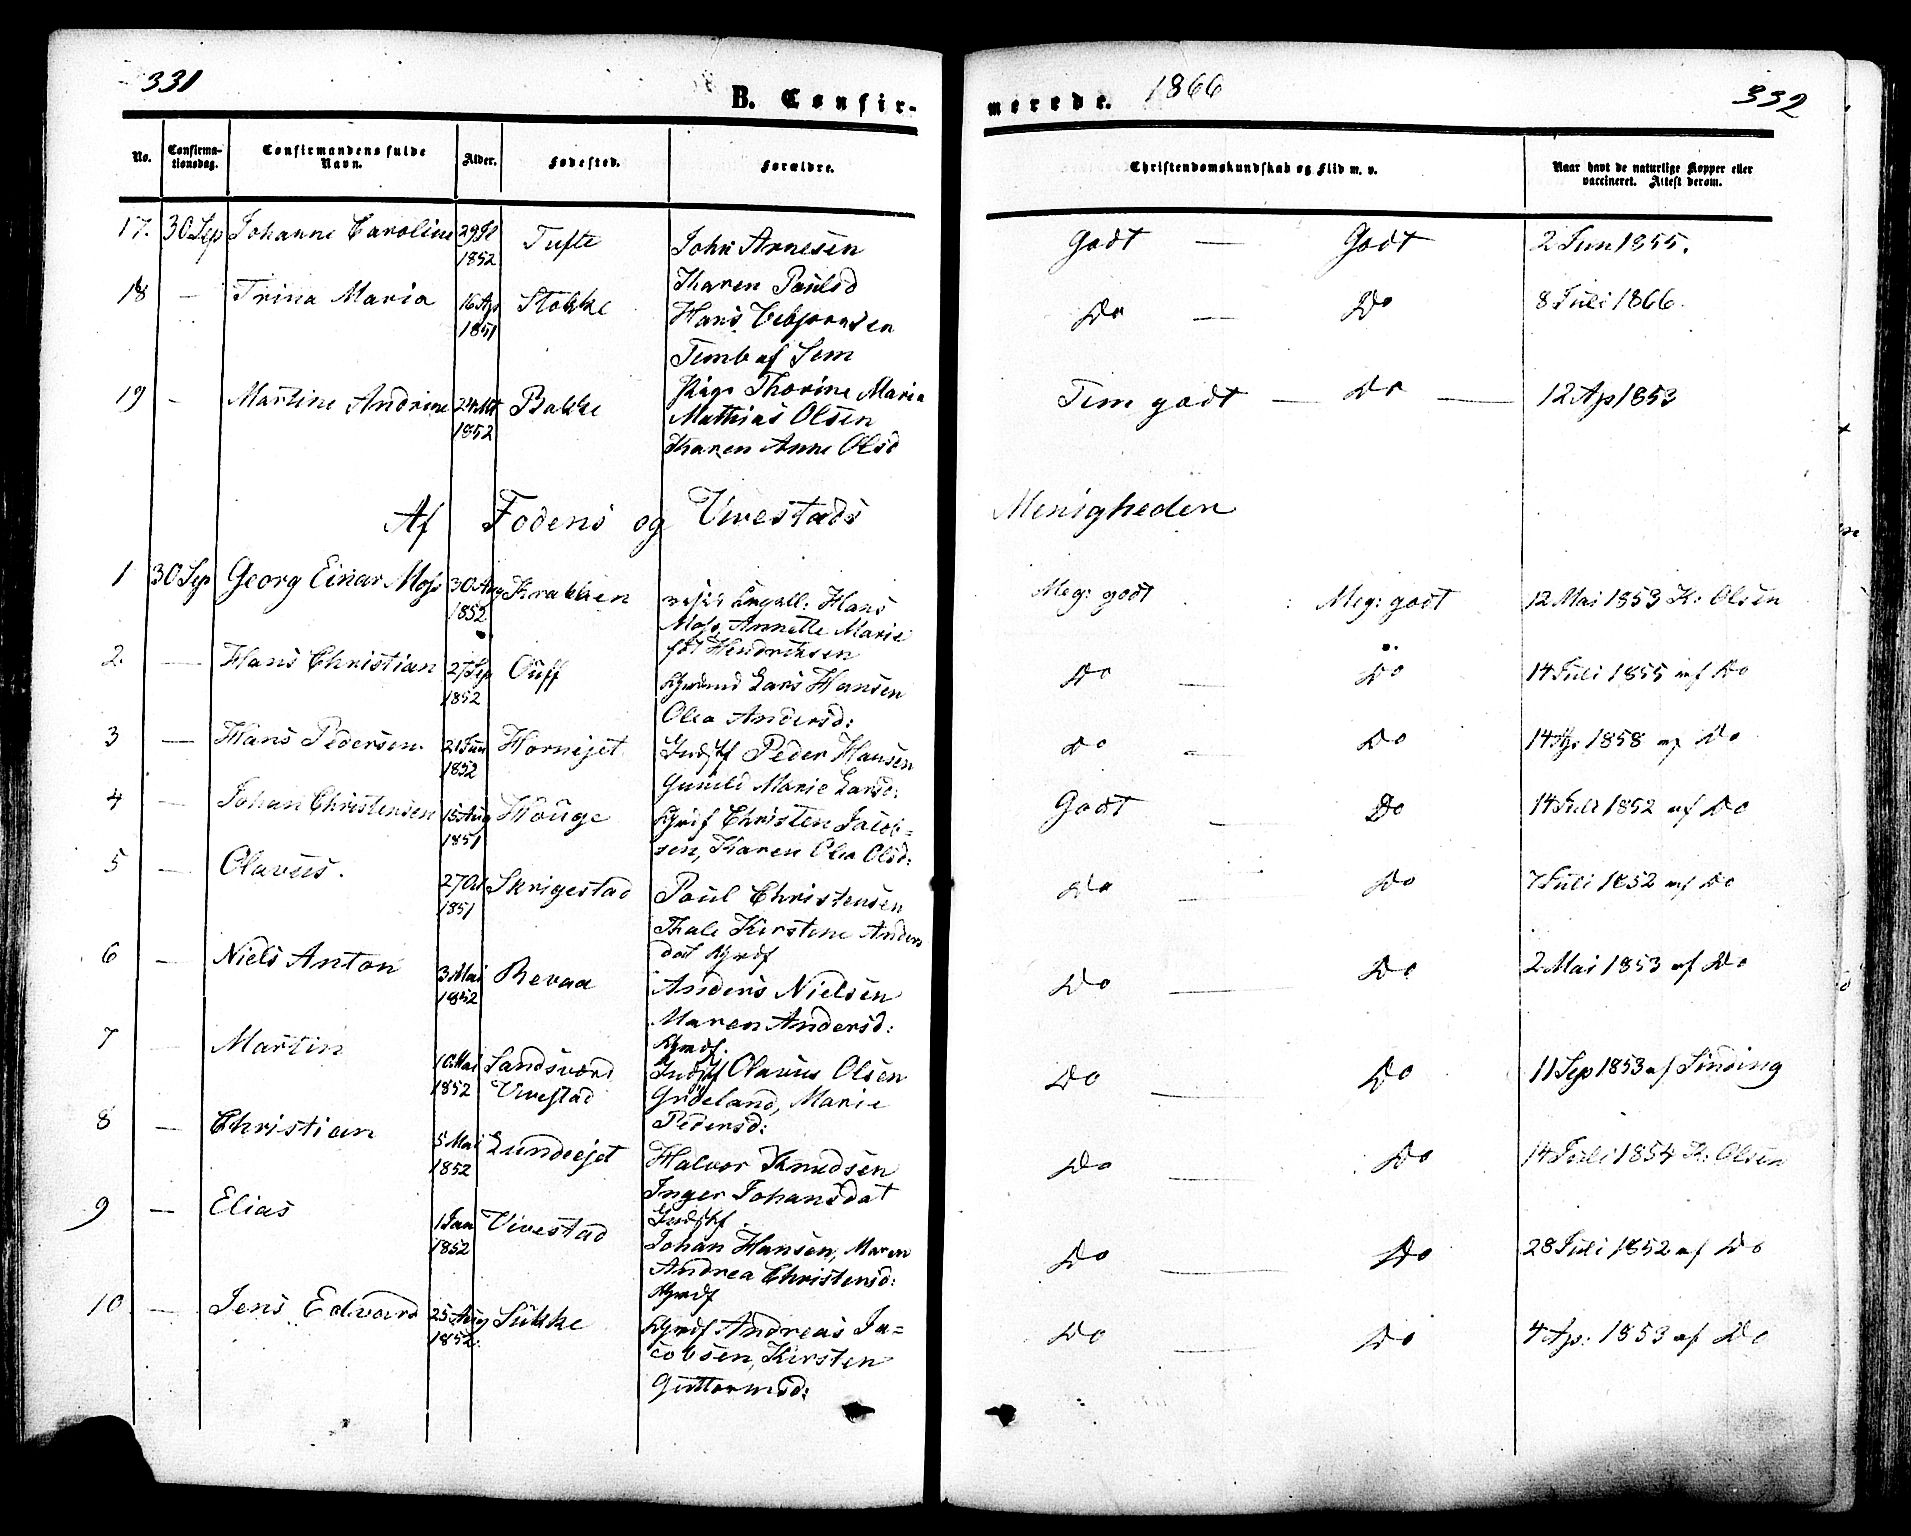 331
B. Confir-
merede. 1866
332
No. Confirma-tionsdag. Confirmandens fulde Navn. Alder. Fødested. Forældre. Christendomskundskab og Flid m. v. Naar havt de naturlige Kopper eller vaccineret. Attest derom.
17. 30 Sep Johanne Caroline 29 Jl 1852 Tufte John Arnesen Godt — Godt 2 Jun 1855.
Karen Paulsd
18 — Trina Maria 16 Ap 1851 Stokke Hans Do — Do 8 Juli 1866.
Temb af Sem
Pige Thorine Maria
19 - Martine Andrine 24 Okt 1852 Bakke Mathias Olsen Tem godt — Do — 12 Ap 1853
Karen Anne Olsd
Af Fodens og Vivestads Menigheden
1 30 Sep Georg Einar Moss 30 Aug 1852 Krakken Hans Meg: godt Meg: godt 12 Mai 1853 K: Olsen
Moss, Annette Marie
fød Hendriksen
2. — Hans Christian 27 Sep 1852 Ouff Lars Hansen Do — Do 14 Juli 1855 af Do
Olea Andersd:
3 — Hans Pedersen 21 Jun 1852 Hornejet Indstf Peder Hansen Do — Do 14 Ap 1858 af Do
Gunild Marie Larsd:
4 — Johan Christensen 15 Aug 1851 Houge Grdf Christen Jacob=
sen, Karen Olea Olsd: Godt — Do 14 Juli 1852 af Do
5 — Olavus. 27 Ok 1851 Skrigestad Paul Christensen Do — Do 7 Juli 1852 af Do
Thale Kirstine Anders
dat Grdf
6 — Niels Anton 3 Mai 1852 Revaa Anders Nielsen Do — Do 2 Mai 1853 af Do
Maren Andersd:
Grdf
7 — Martin 10 Mai 1852 Sandsværd Vivestad Indstf Olavus Olsen Do — Do 11 Sep 1853 af Sinding
Grideland, Marie
Pedersd:
8 — Christian 5 Mai 1852 Lundeejet Halvor Knudsen Do — Do 14 Juli 1854 K: Olsen
Inger Johansdat
Indstf
9 — Elias 1 Jan 1852 Vivestad Johan Hansen, Maren Do — Do 28 Juli 1852 af Do
Andrea Christensd:
Grdf
10 — Jens Edvard 25 Aug 1852. Sukke Grdf Andreas Ja=
cobsen, Kirsten Do — Do 4 Ap: 1853 af Do
Guttormsd: